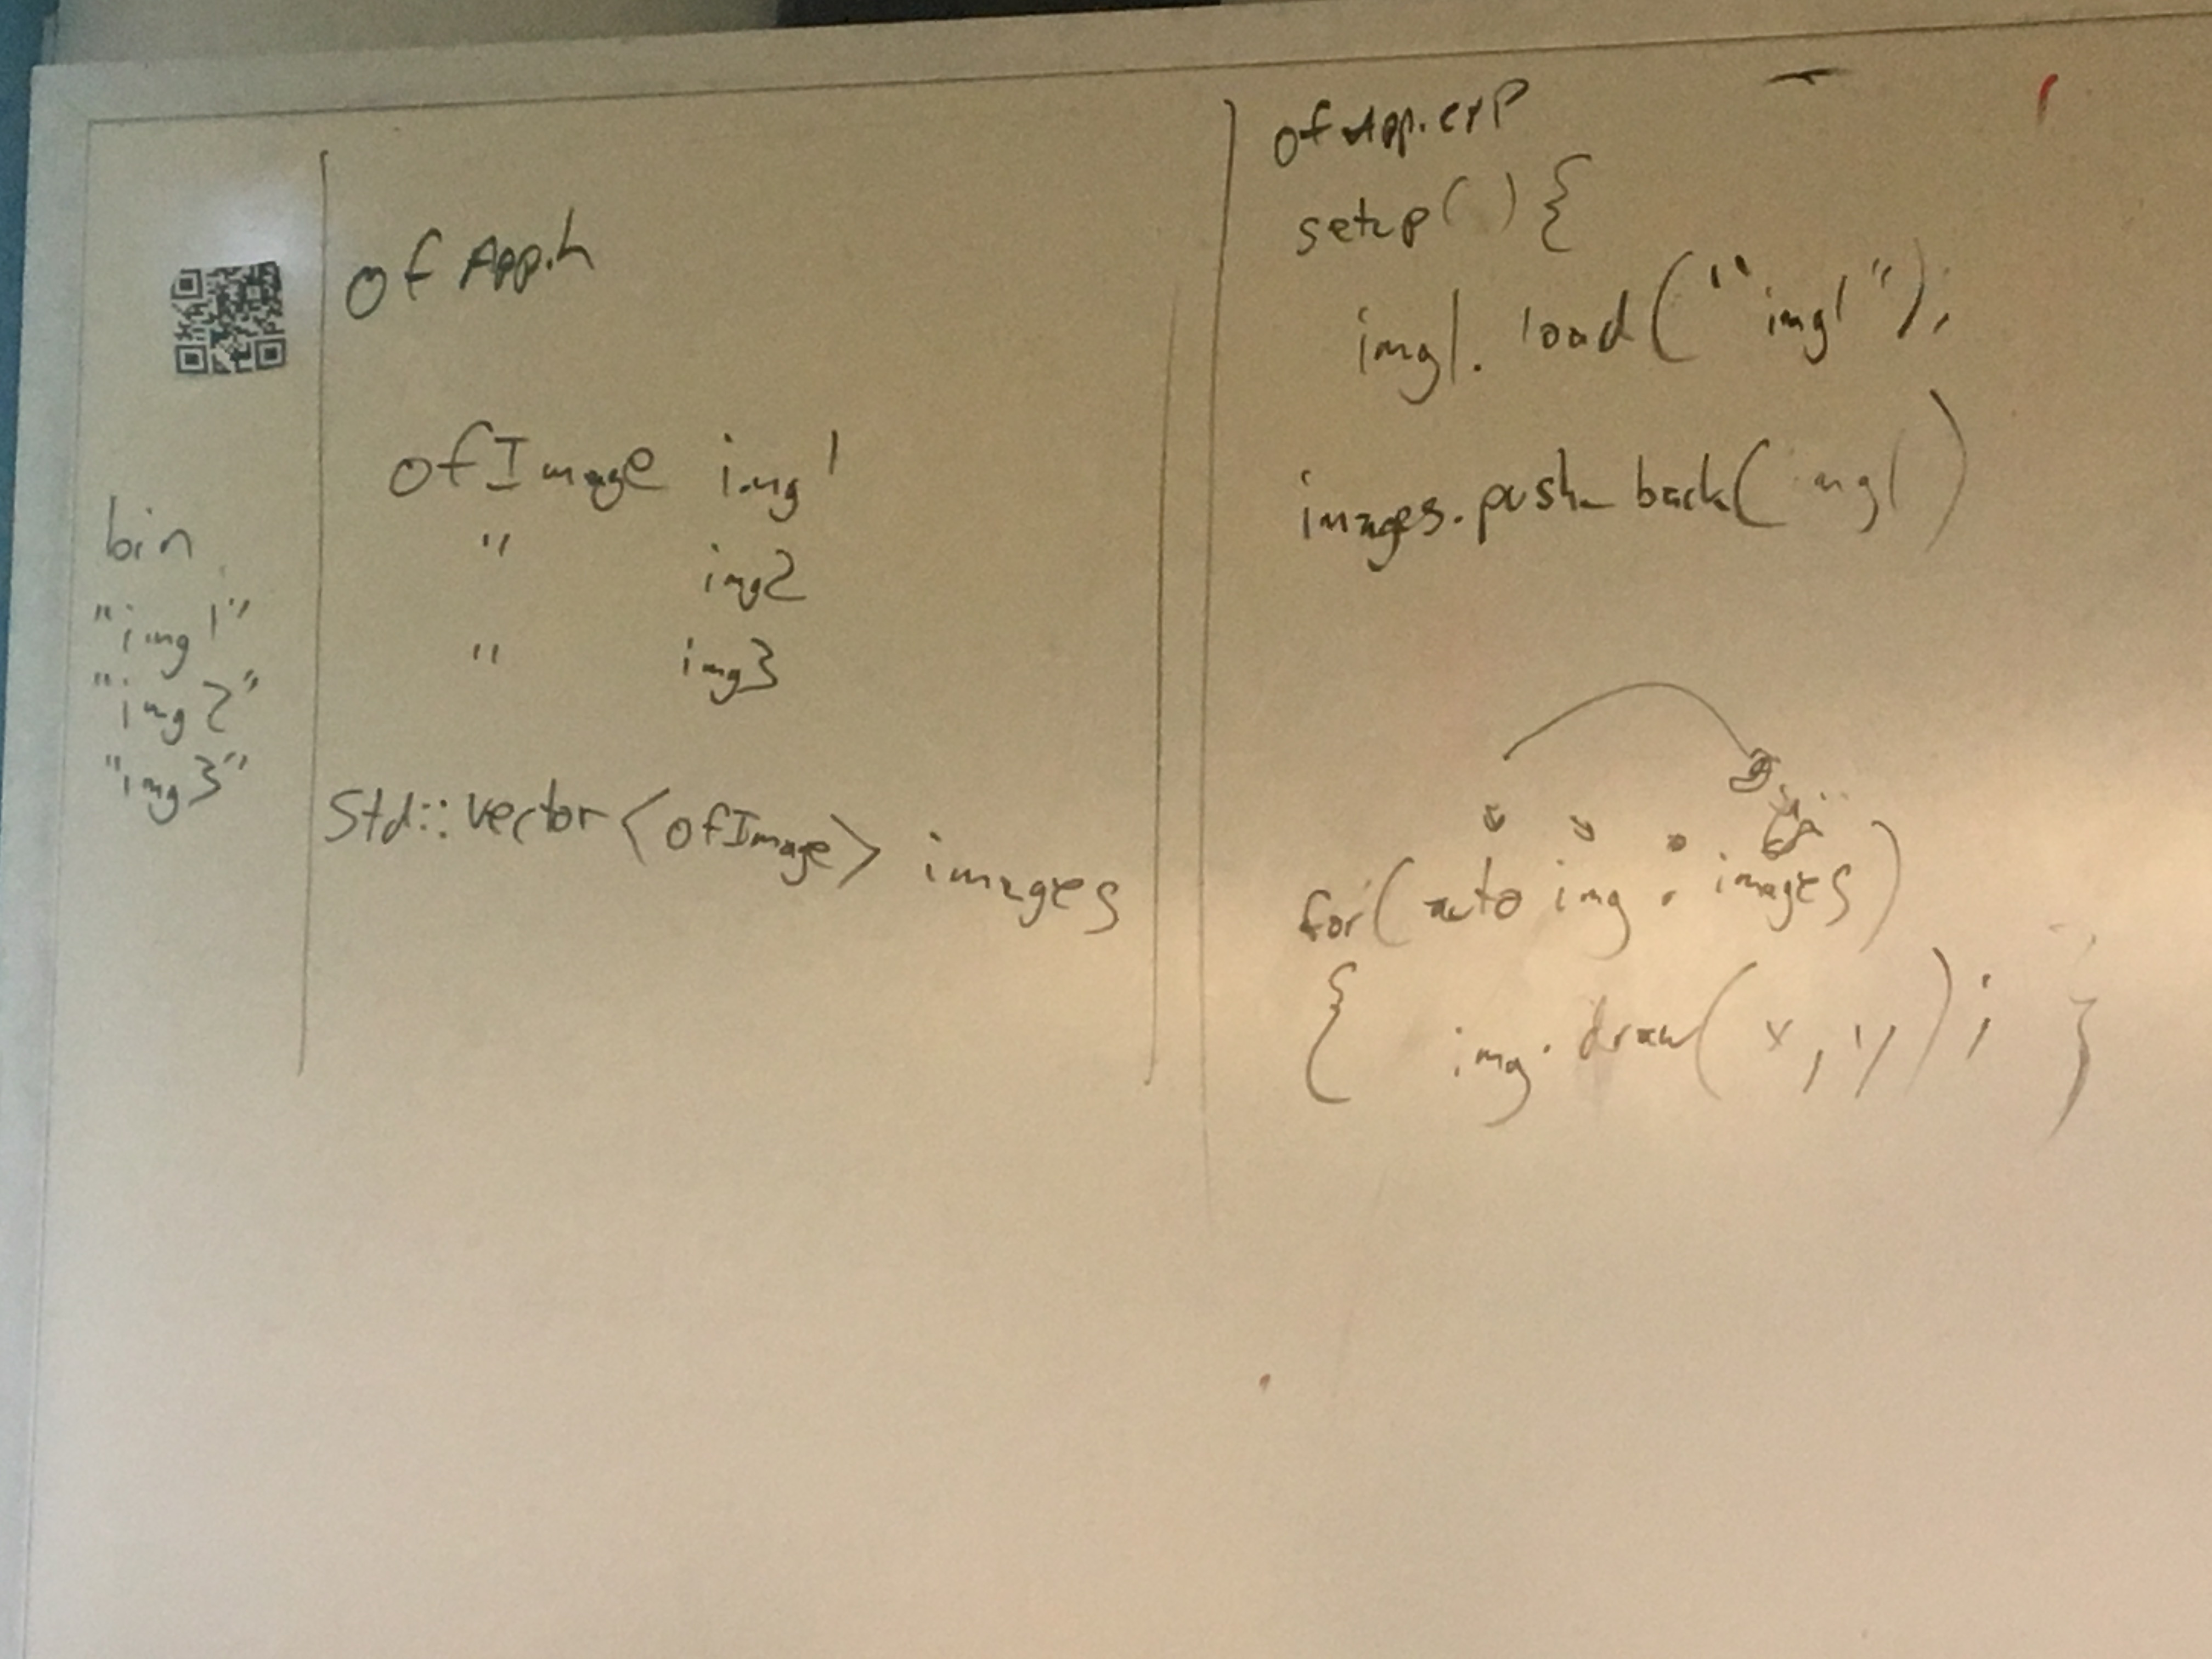 bin
"img1"
"img2"
"img3"
ofApp.h
ofImage img1
" img2
" img3
Std::vector<ofImage> images
ofApp.cpp
setup(){
img1.load("img1");
images.push_back(img1)
for(auto img : images)
{ img.draw(x,y); }